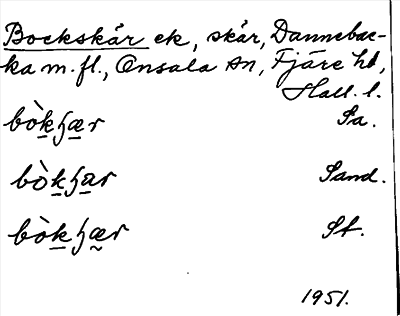 Bockskår ek, skår, Danneba-
ka m.fl., Onsala sn, Fjäre hd,
Hall. l.
bòkʒær Sa.
bòkʒar Sand.
bòkʒær St.
1951.